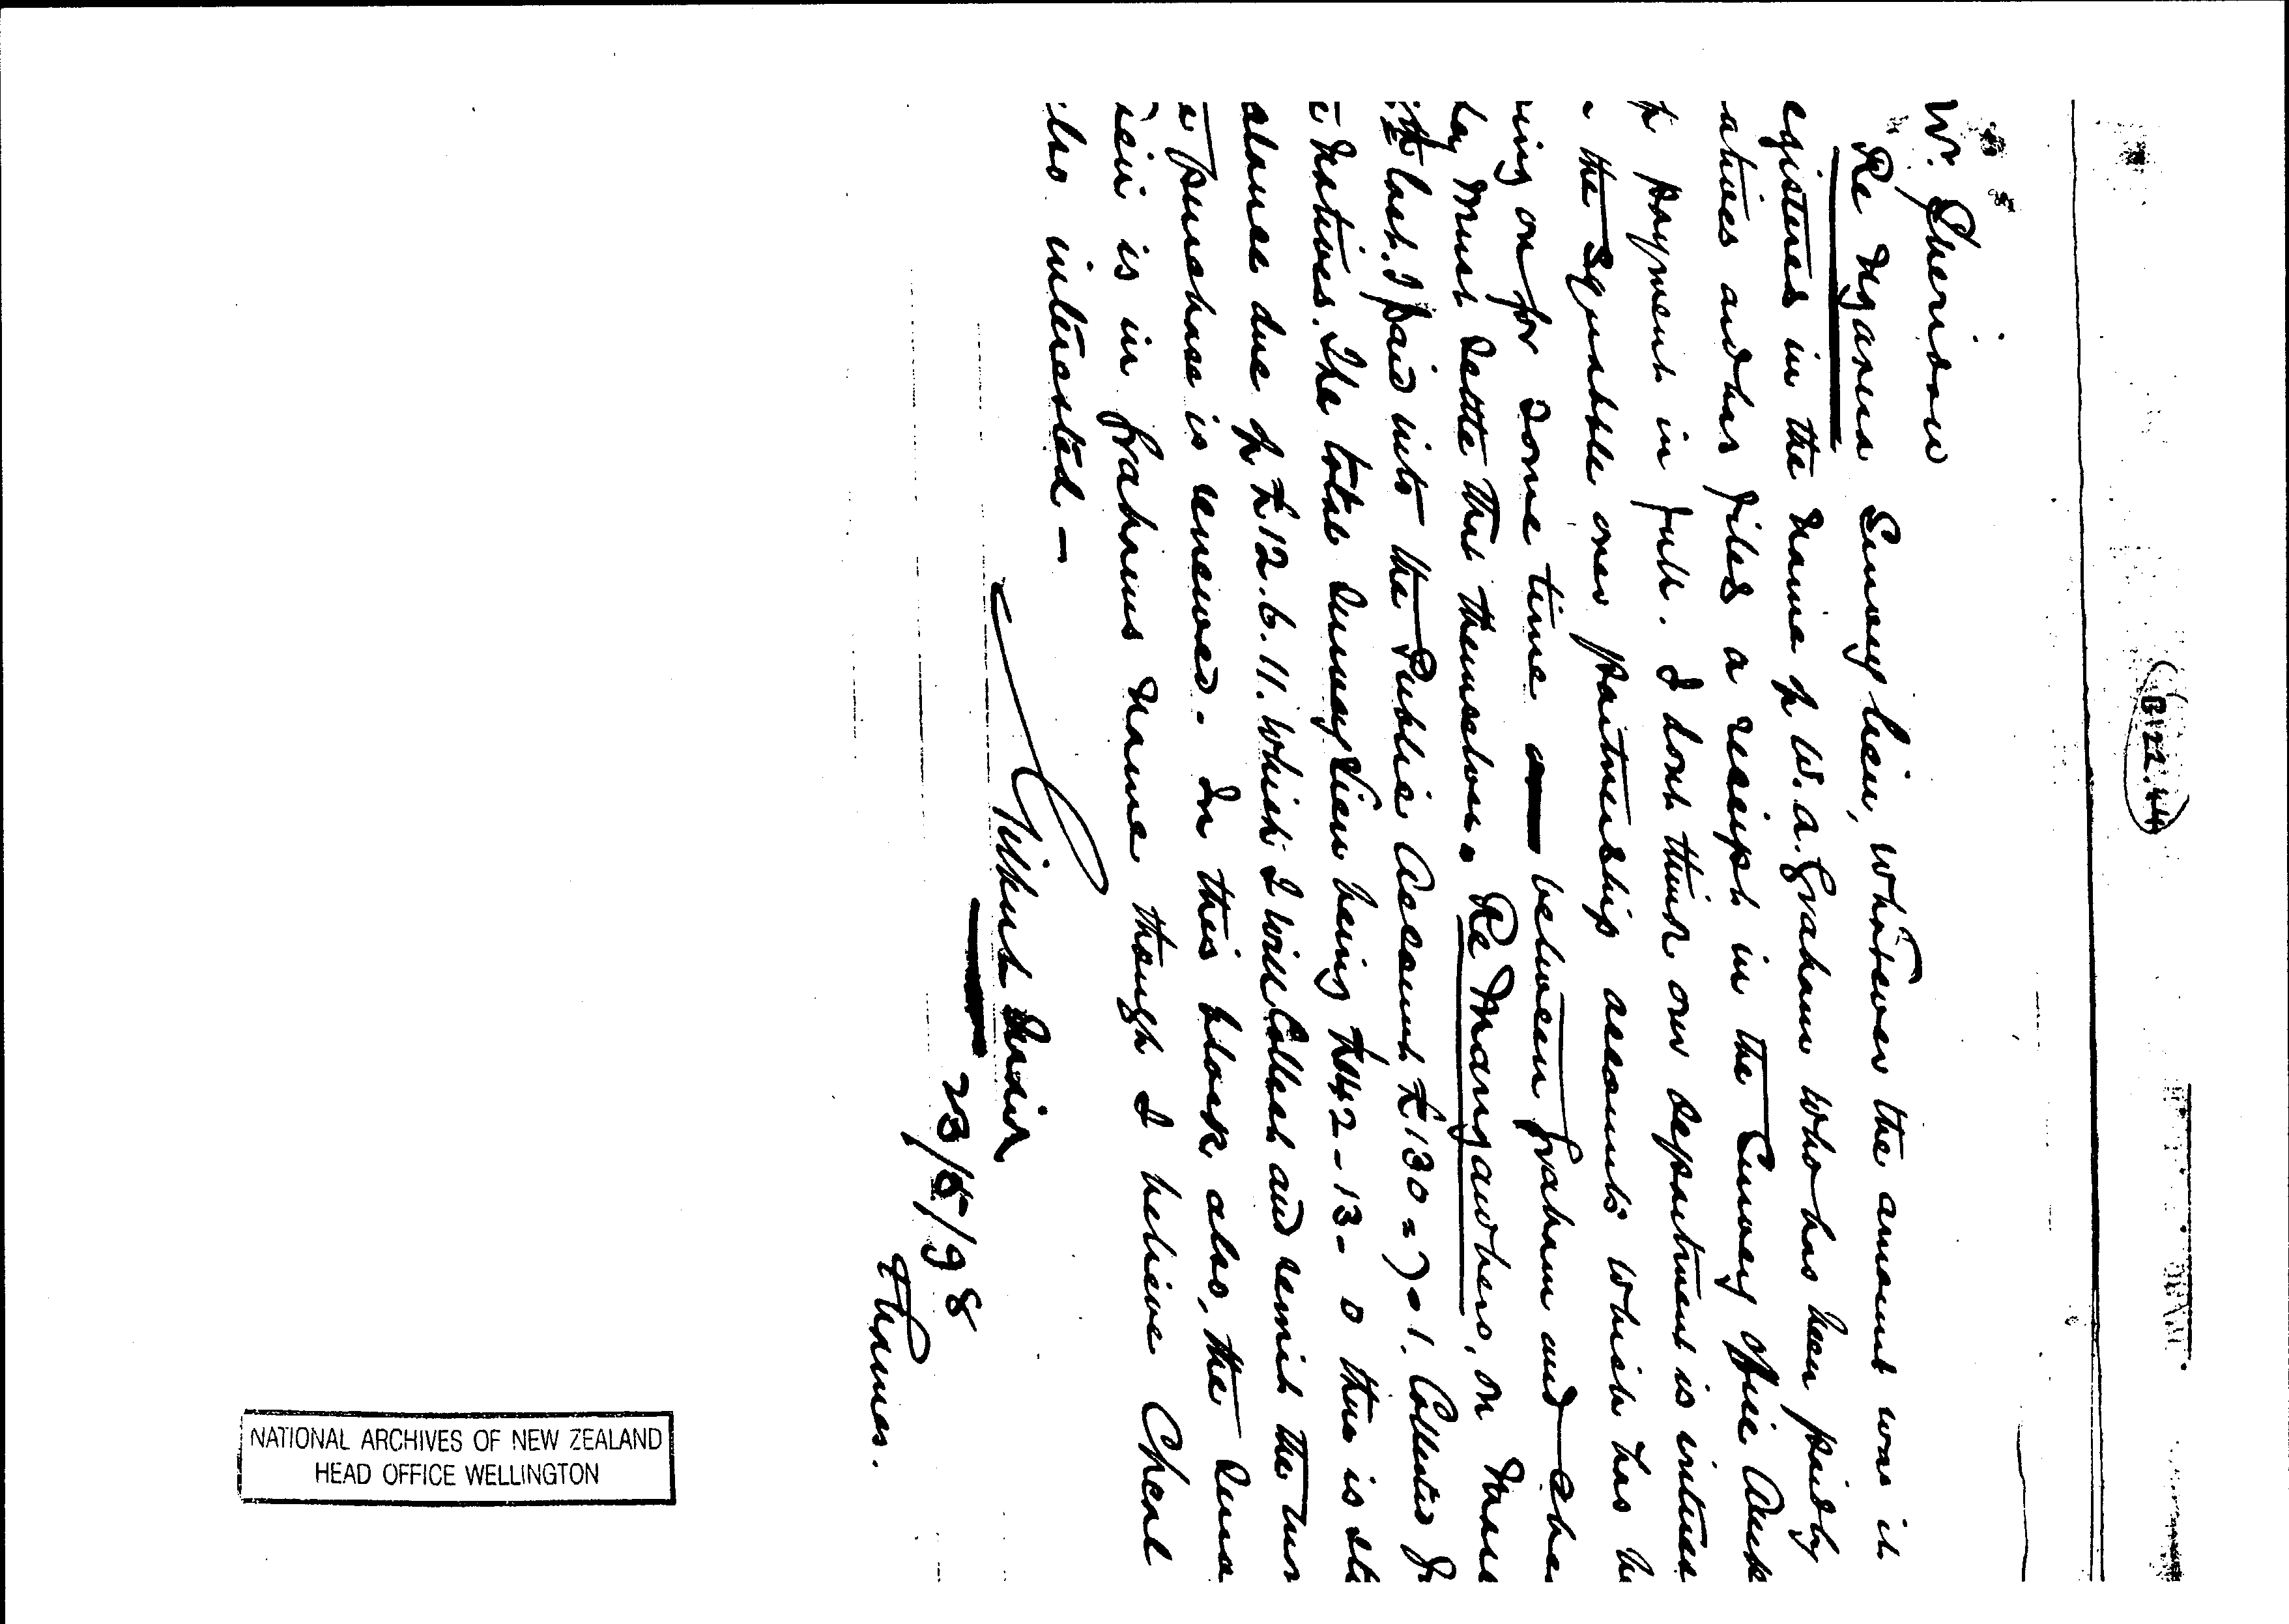 B122.44
Mr. Sherison
Re Ngarua Survey lien, whatever the amount was it
egistered in the name of W. A. Graham who has been paid by
atives and has filed a receipt in the Survey Office Auck
f payment in full. I dont think our department is interes
the squabble over partnership accounts which has be
ring on for some time between Graham and Chea
hey must settle that themselves. Re Mangawhero, on
last. I paid into the Public Account £130=7=1. Collected
Natives. The total survey lien being £142-13-0 there is sti
alance due of £12.6.11. which I will Collect and remit the
purchase is renewed. In this block also, the surve
lein is in Grahams name though I believe Cheal
also interested —
Gilbert Mair
23/5/98
Thames.
NATIONAL ARCHIVES OF NEW ZEALAND
HEAD OFFICE WELLINGTON